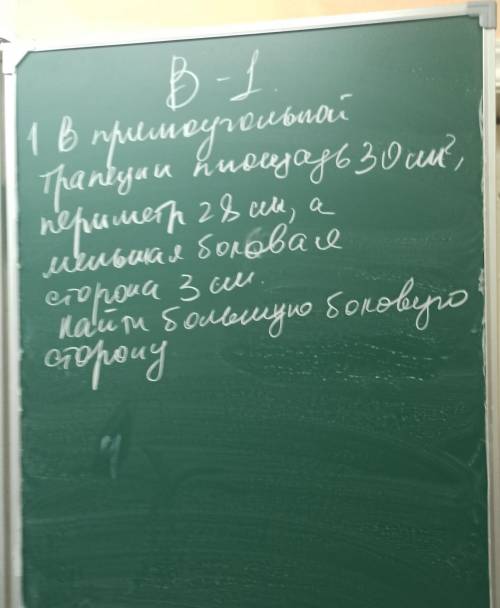 В - 1.
1 В прямоугольной
трапеции площадь 30 см²,
периметр 28 см, а
меньшая боковая
сторона 3 см.
найти большую боковую
сторону